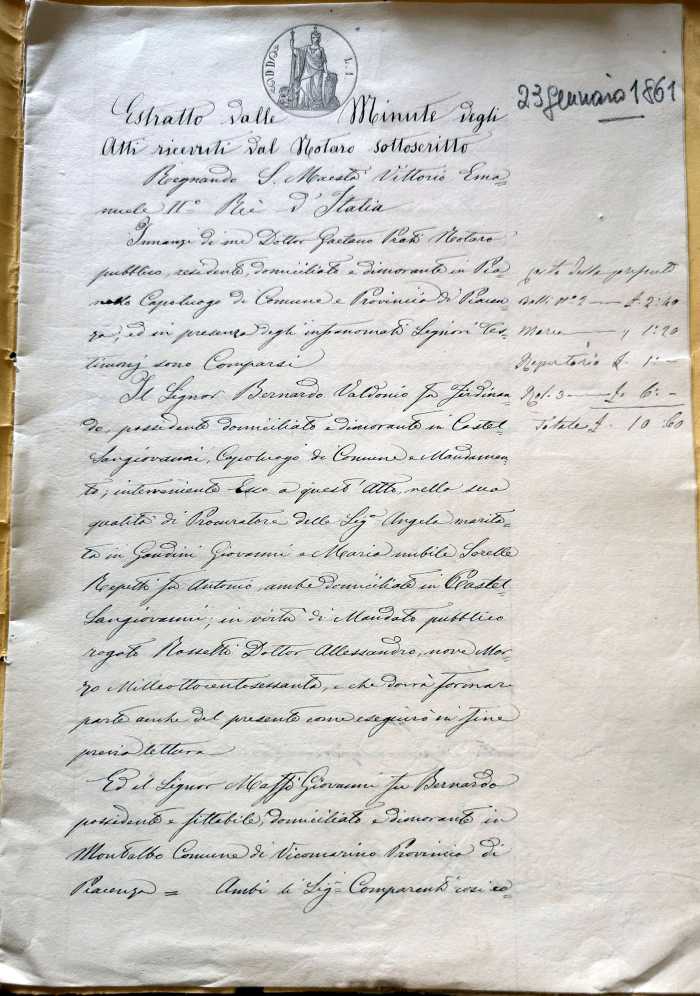 L. 1
23 Gennaio 1861
Estratto dalle Minute degli
Atti ricevuti dal Notaro sottoscritto
Regnando S. Maestà Vittorio Ema=
nuele II.° Rè d'Italia
Innanzi di me Dottor Gaetano Prati Notaro
pubblico, residente, domiciliato e dimorante in Pia=
nello Capoluogo di Comune e Provincia di Piacen=
za, ed in presenza degli infranomati Signori Tes=
timonj sono Comparsi
Il Signor Bernardo Valdonio fu Ferdinan=
do, possidente domiciliato e dimorante in Castel=
Sangiovanni, Capoluogo di Comune e Mandamen=
to; interveniente Esso a quest'Atto, nella sua
qualità di Procuratore delle Sig.e Angela marita=
ta in Gandini Giovanni e Maria nubile Sorelle
Repetti fu Antonio, ambe domiciliate in Castel=
Sangiovanni; in virtù di Mandato pubblico
rogato Rossetti Dottor Allessandro, nove Mar=
zo Milleottocentosessanta, e che dovrà formar
parte anche del presente come eseguirò in fine
previa lettura
Ed il Signor Maffi Giovanni fu Bernardo
possidente e fittabile, domiciliato e dimorante in
Montalbo Comune di Vicomarino Provincia di
Piacenza = Ambi li Sig.ri Comparenti così co=
Costo della presente
Bolli N° 2 — £. 2:40
— " 1:20
Repertorio £. 1:—
3 — £. 6:—
Totale £. 10:60